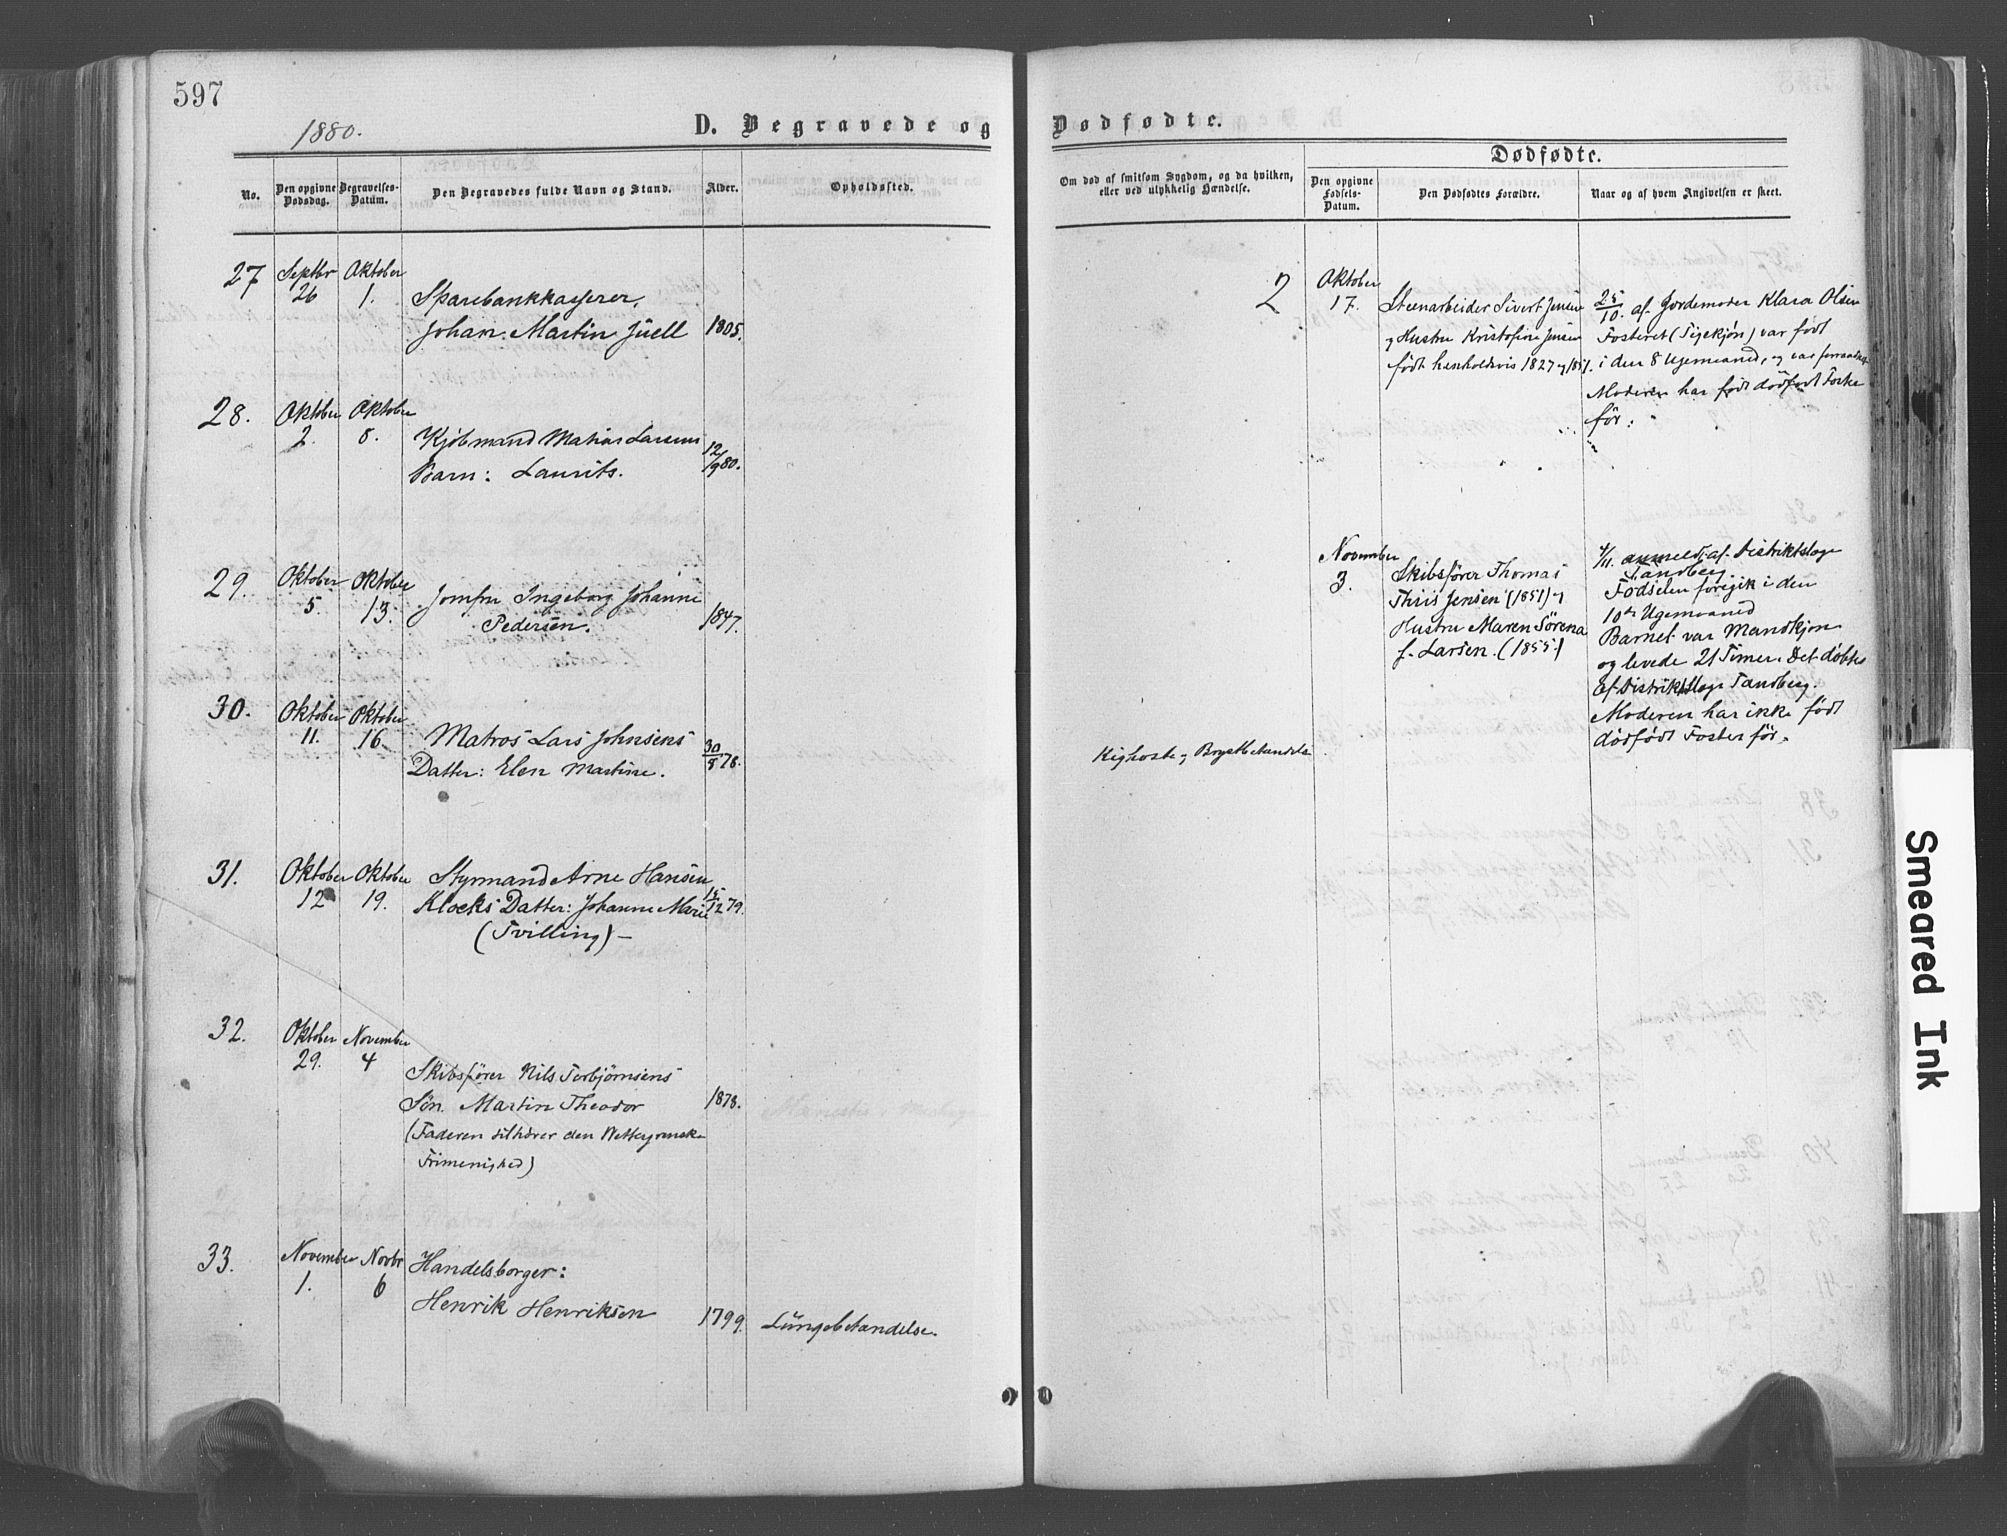 597
1880.
D. Begravede og
No.
Den opgivne Dødsdag.
Begravelses-Datum.
Den Begravedes fulde Navn og Stand.
Alder.
Opholdssted.
27
Septbr 26
Oktober 1.
Sparebankkasserer,
Johan Martin Juell
1805.
28.
Oktober 2.
Oktober 8.
Kjøbmand Matias Larsens
Barn: Laurits.
12/9 80.
29.
Oktober 5.
Oktober 13.
Jomfru Ingeborg Johanne
Pedersen.
1847.
30.
Oktober 11.
Oktober 16
Matros Lars Johnsens
Datter: Elen Martine.
30/8 78.
31.
Oktober 12
Oktober 19.
Styrmand Arne Hansen
Klocks Datter: Johanne Marie
(Tvilling) –
15/12 79.
32.
Oktober 29.
November 4
Skibsfører Nils Terbjørnsens
Søn Martin Theodor
(Faderen tilhører den
Frimenighed)
1878.
33.
November 1.
Novbr 6
Handelsborger:
Henrik Henriksen
1799.
Lungebetændelse.
Dødfødte.
Om død af smitsom Sygdom, og da hvilken,
eller ved ulykkelig Hændelse.
Dødfødte.
Den opgivne Fødsels-Datum.
Den Dødfødtes Forældre.
Naar og af hvem Angivelsen er skeet.
2
Oktober 17.
Steenarbeider Sivert Jensen
og Hustru Kristofine Jensen
født henholdsvis 1827 og 1837.
25/10. af Jordemoder Klara Olsen
Fosteret (Pigekjøn) var født
i den 8 Ugemaaned, og var
Moderen har født dødfødt Foster
før.
November 3.
Skibsfører Thomas
Thiis Jensen (1851) og
Hustru Maren Sørena
f. Larsen. (1855)
4/11. anmeldt af Distriktslæge
Tandberg
Fødselen foregik i den
10de Ugemaaned
Barnet var Mandkjøn
og levede 21 Timer. Det døbtes
af Distriktslæge Tandberg.
Moderen har ikke født
dødfødt Foster før.
Kighoste og Brystbetændelse
Smeared Ink